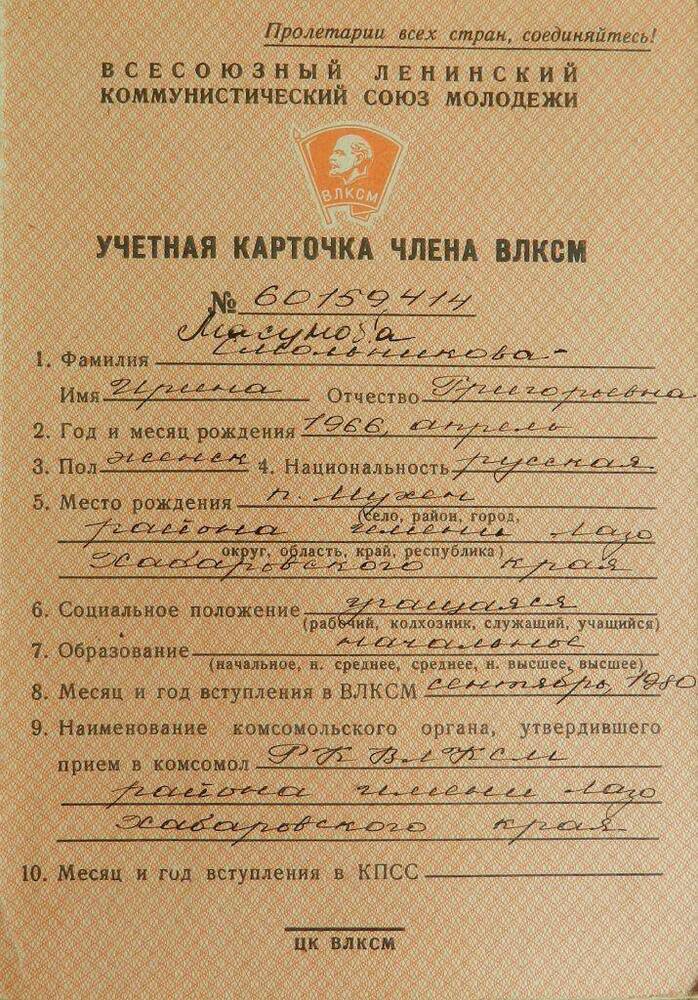 Пролетарии всех стран, соединяйтесь!
ВСЕСОЮЗНЫЙ ЛЕНИНСКИЙ
КОММУНИСТИЧЕСКИЙ СОЮЗ МОЛОДЕЖИ
ВЛКСМ
УЧЕТНАЯ КАРТОЧКА ЧЛЕНА ВЛКСМ
№ 60159414
Масунова
1. Фамилия Смольникова
Имя Ирина Отчество Григорьевна
2. Год и месяц рождения 1966, апрель
3. Пол женск 4. Национальность русская
5. Место рождения п. Мухен
(село, район, город,
района имени Лазо
округ, область, край, республика)
Хабаровского края
6. Социальное положение учащаяся
(рабочий, колхозник, служащий, учащийся)
7. Образование начальное
(начальное, н. среднее, среднее, н. высшее, высшее)
8. Месяц и год вступления в ВЛКСМ сентябрь, 1980
9. Наименование комсомольского органа, утвердившего
прием в комсомол РК ВЛКСМ
района имени Лазо
Хабаровского края
10. Месяц и год вступления в КПСС
ЦК ВЛКСМ